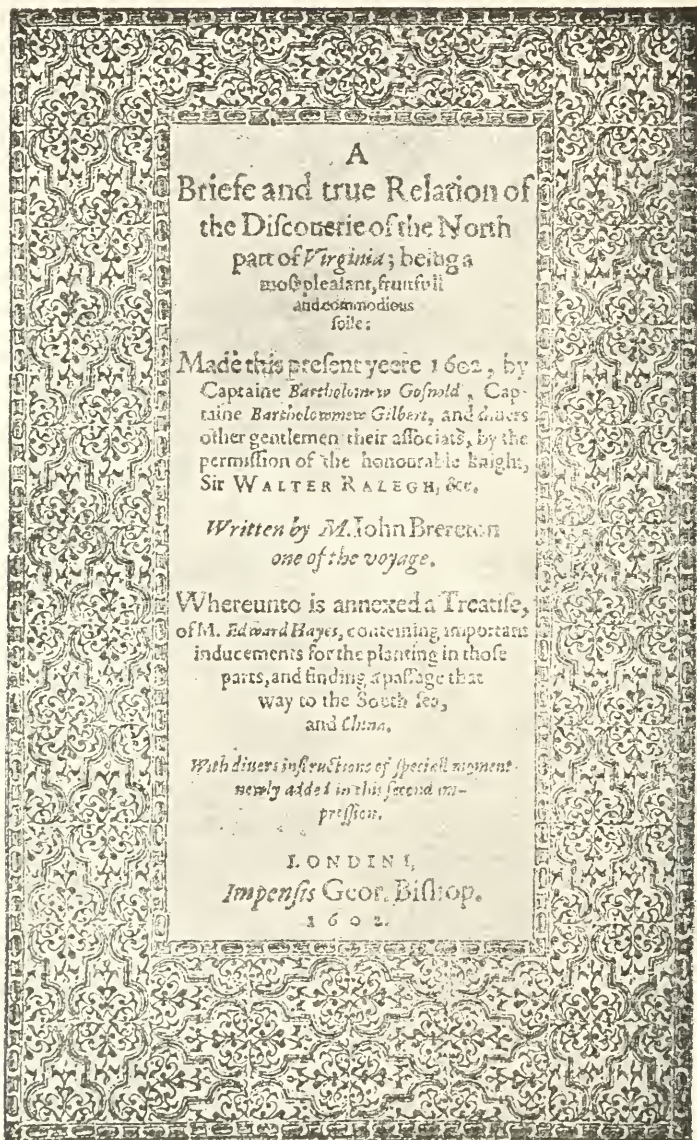 A
Briefe and true Relation of
the Diſcouerie of the North
part of Virginia; being a
moſt pleaſant, fruitfull
and commodious
ſoile:
Made this preſent yeere 1602, by
Captaine Bartholomew Goſnold, Cap-
taine Bartholowmew Gilbert, and diuers
other gentlemen their aſſociats, by the
permiſſion of the honourable knight,
Sir WALTER RALEGH, &c.
Written by M. Iohn Brereton
one of the voyage.
Whereunto is annexed a Treatiſe,
of M. Edward Hayes, conteining important
inducements for the planting in thoſe
parts, and finding a paſſage that
way to the South ſea,
and China.
With diuers inſtructions of ſpeciall moment
newly added in this ſecond im-
preſſion.
LONDINI,
Impenſis Geor. Biſhop.
1602.